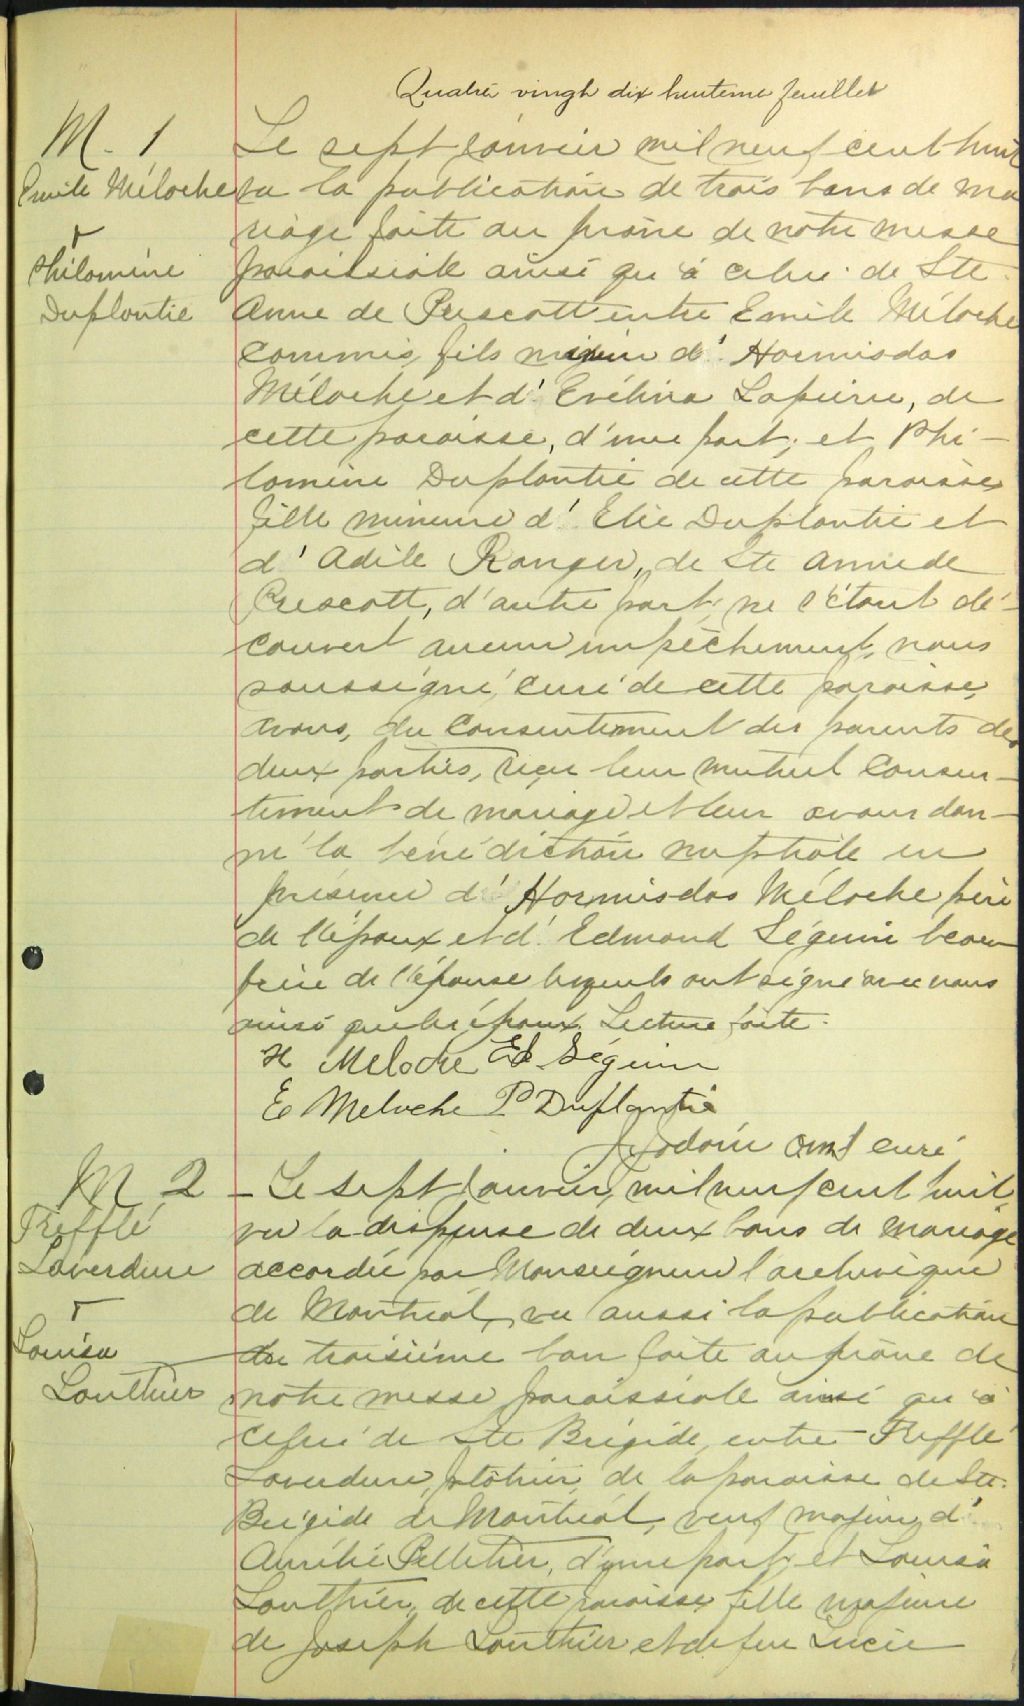 Quatre vingh dix huiteme feuillet
M. 1
Emile Méloche
&
Philomène
Duplantie
Le sept janvier mil neuf cent huit
vu la publication de trois bans de ma
riage faite au prône de notre messe
paroissiale ainsi qu'à celui de Ste
Anne de Prescott entre Emile Méloche
commis, fils majeur d'Hormisdas
Méloche et d'Evélina Lapierre, de
cette paroisse, d'une part; et Phi-
lomène Duplantie de cette paroisse
fille mineure d'Elie Duplantie et
d'Adèle Ranger, de Ste Anne de
Prescott, d'autre part; ne s'étant dé-
couvert aucun empêchement, nous
soussigné, curé de cette paroisse,
avons, du consentement des parents des
deux parties, reçu leur mutuel consen-
tement de mariage et leur avons don-
né la bénédiction nuptiale en
présence d'Hormisdas Méloche père
de l'époux et d'Edmond Séguin beau
frère de l'épouse lesquels ont signé avec nous
ainsi que les époux. Lecture faite.
H Meloche Ed. Séguin
E Meloche P Duplantie
J Jodoin curé
M 2
Trefflé
Laverdure
&
Louisa
Louthier
Le sept janvier, mil neuf cent huit,
vu la dispense de deux bans de mariage
accordée par Monseigneur l'archevêque
de Montréal, vu aussi la publication
du troisième ban faite au prône de
notre messe paroissiale ainsi qu'à
celui de Ste Brigide, entre Trefflé
Laverdure, plâtrier, de la paroisse de Ste
Brigide de Montréal, veuf majeur d'
Aurélie Pelletier, d'une part; et Louisa
Louthier, de cette paroisse, fille majeure
de Joseph Louthier et de feu Lucie